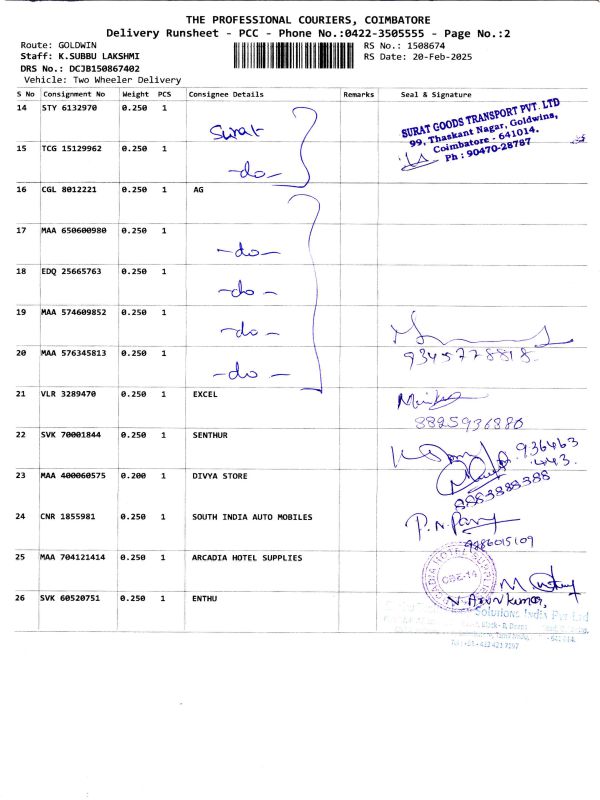 THE PROFESSIONAL COURIERS, COIMBATORE
Delivery Runsheet - PCC - Phone No.:0422-3505555 - Page No.:2
Route: GOLDWIN
Staff: K.SUBBU LAKSHMI
DRS No.: DCJB150867402
Vehicle: Two Wheeler Delivery
RS No.: 1508674
RS Date: 20-Feb-2025
S No Consignment No Weight PCS Consignee Details Remarks Seal & Signature
14 STY 6132970 0.250 1 Surat
SURAT GOODS TRANSPORT PVT. LTD
99, Thaskant Nagar, Goldwins,
Coimbatore - 641014.
Ph : 90470-28787
15 TCG 15129962 0.250 1 -do-
16 CGL 8012221 0.250 1 AG
17 MAA 650600980 0.250 1 -do-
18 EDQ 25665763 0.250 1 -do-
19 MAA 574609852 0.250 1 -do-
20 MAA 576345813 0.250 1 -do-
9345778818
21 VLR 3289470 0.250 1 EXCEL
8825936880
22 SVK 70001844 0.250 1 SENTHUR
936463
443.
23 MAA 400060575 0.200 1 DIVYA STORE
24 CNR 1855981 0.250 1 SOUTH INDIA AUTO MOBILES
P.N.
9286015109
25 MAA 704121414 0.250 1 ARCADIA HOTEL SUPPLIES
CBE-14
26 SVK 60520751 0.250 1 ENTHU
N. Arun Kumar,
Solutions India Pvt Ltd